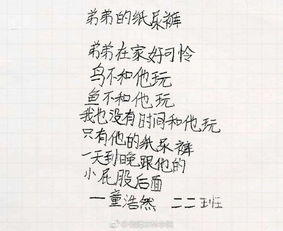 弟弟的纸尿裤
弟弟在家好可怜
鸟不和他玩
鱼不和他玩
我也没有时间和他玩
只有他的纸尿裤
一天到晚跟他的
小屁股后面
一童浩然 二2班